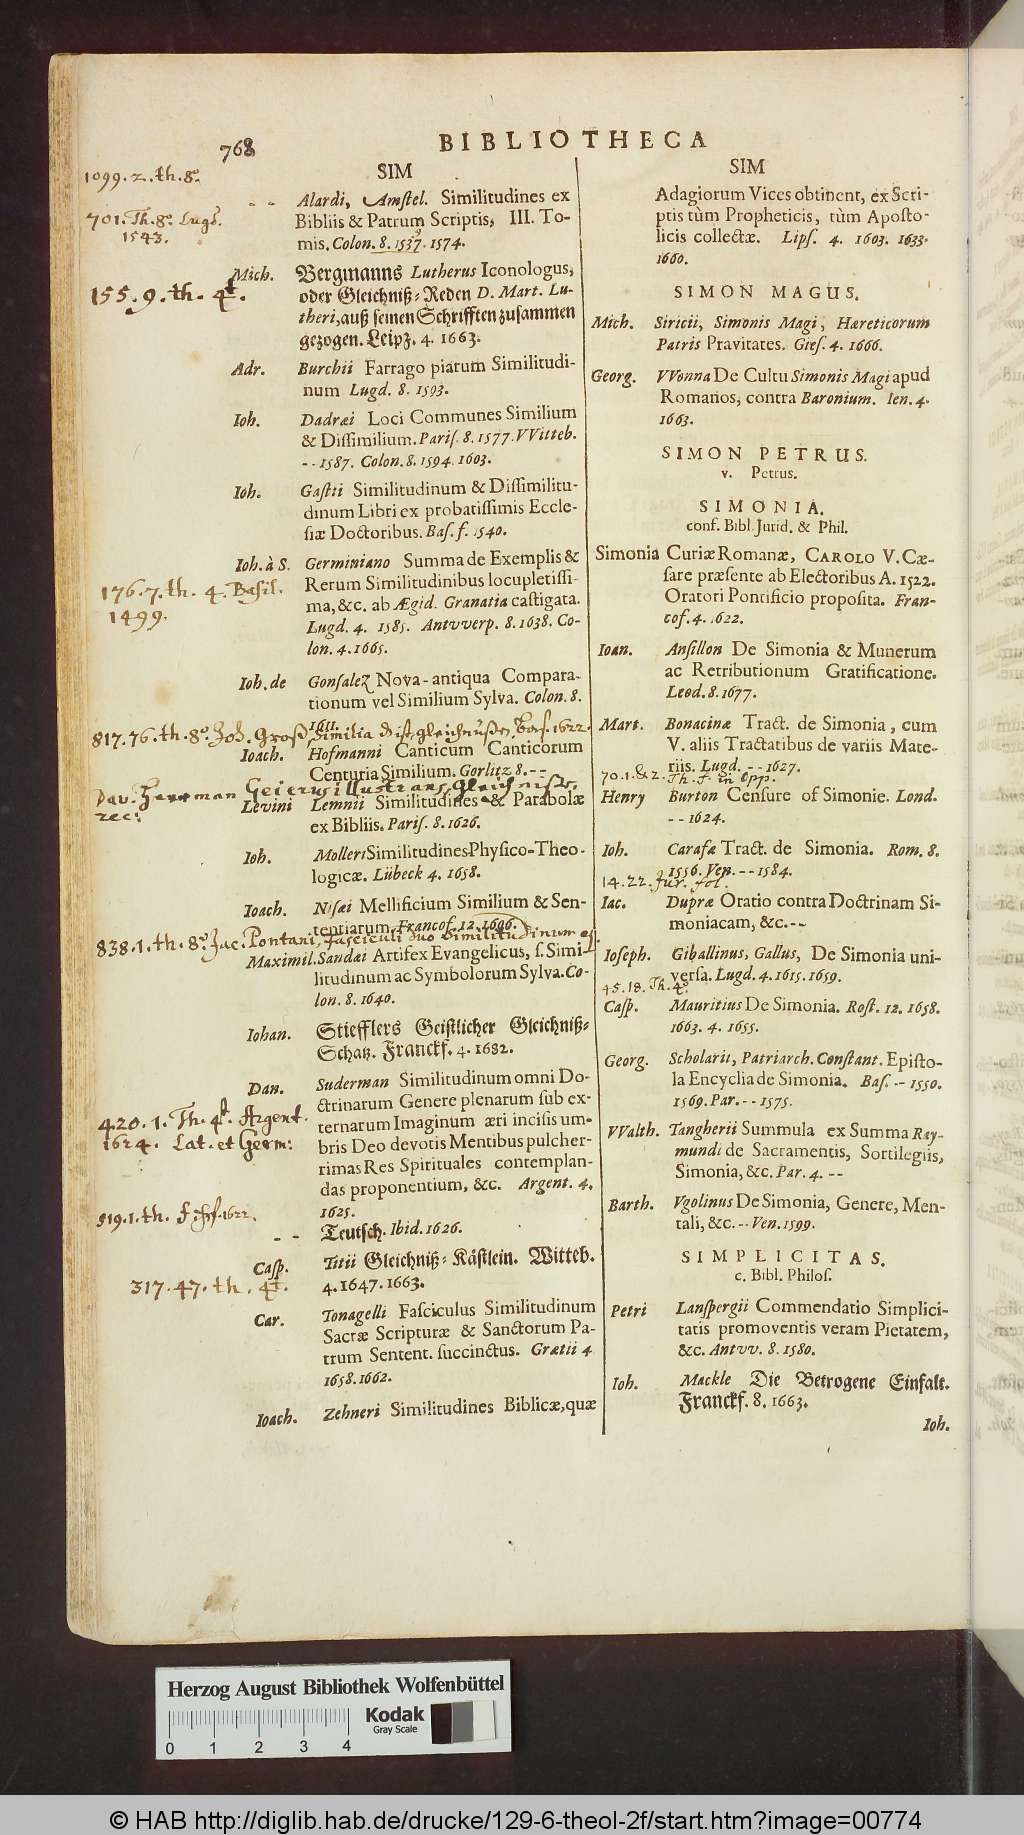 768
BIBLIOTHECA
SIM
1099. 2. th. 8º.
- - Alardi, Amstel. Similitudines ex
Bibliis & Patrum Scriptis, III. To-
mis. Colon. 8. 1537. 1574.
701. Th. 8º. Lugd.
1543.
Mich. Bergmanns Lutherus Iconologus,
oder Gleichniß-Reden D. Mart. Lu-
theri, auß seinen Schrifften zusammen
gezogen. Leipz. 4. 1663.
155. 9. th. 4t.
Adr. Burchii Farrago piarum Similitudi-
num Lugd. 8. 1593.
Ioh. Dadræi Loci Communes Similium
& Dissimilium. Paris. 8. 1577. VVitteb.
- - 1587. Colon. 8. 1594. 1603.
Ioh. Gastii Similitudinum & Dissimilitu-
dinum Libri ex probatissimis Eccle-
siæ Doctoribus. Bas. f. 1540.
Ioh. à S. Germiniano Summa de Exemplis &
Rerum Similitudinibus locupletissi-
ma, &c. ab Ægid. Granatia castigata.
Lugd. 4. 1585. Antvverp. 8. 1638. Co-
lon. 4. 1665.
176. 7. th. 4. Basil.
1499.
Ioh. de Gonsalez Nova-antiqua Compara-
tionum vel Similium Sylva. Colon. 8.
1611.
817. 76. th. 8º. Joh. Groß Similia dist gleichnüßen, Bas. 1622.
Ioach. Hofmanni Canticum Canticorum
Centuria Similium. Gorlitz 8. - -
Dav. Herrman Geierus illustrans, Gleichniße.
rec:
Levini Lemnii Similitudines & Parabolæ
ex Bibliis. Paris. 8. 1626.
Ioh. Molleri Similitudines Physico-Theo-
logicæ. Lübeck 4. 1658.
Ioach. Nisæi Mellificium Similium & Sen-
tentiarum. Francof. 12. 1606.
838. 1. th. 8º. Jac. Pontani, fasciculi duo Similitudinum
Maximil. Sandæi Artifex Evangelicus, s. Simi-
litudinum ac Symbolorum Sylva. Co-
lon. 8. 1640.
Iohan. Stiefflers Geistlicher Gleichniß-
Schatz. Franckf. 4. 1682.
Dan. Suderman Similitudinum omni Do-
ctrinarum Genere plenarum sub ex-
ternarum Imaginum æri incisis um-
bris Deo devotis Mentibus pulcher-
rimas Res Spirituales contemplan-
das proponentium, &c. Argent. 4.
1625.
420. 1. Th. 4t. Argent.
1624. Lat. et Germ:
519. 1. th. f 1622.
- - Teutsch. Ibid. 1626.
Casp. Titii Gleichniß-Kästlein. Witteb.
4. 1647. 1663.
317. 47. th. 4t.
Car. Tonagelli Fasciculus Similitudinum
Sacræ Scripturæ & Sanctorum Pa-
trum Sentent. succinctus. Grætii 4
1658. 1662.
Ioach. Zehneri Similitudines Biblicæ, quæ
SIM
Adagiorum Vices obtinent, ex Scri-
ptis tùm Propheticis, tùm Aposto-
licis collectæ. Lips. 4. 1603. 1633.
1660.
SIMON MAGUS.
Mich. Siricii, Simonis Magi, Hæreticorum
Patris Pravitates. Gies. 4. 1666.
Georg. VVonna De Cultu Simonis Magi apud
Romanos, contra Baronium. Ien. 4.
1663.
SIMON PETRUS.
v. Petrus.
SIMONIA.
conf. Bibl. Jurid. & Phil.
Simonia Curiæ Romanæ, CAROLO V. Cæ-
sare præsente ab Electoribus A. 1522.
Oratori Pontificio proposita. Fran-
cof. 4. 1622.
Ioan. Ansillon De Simonia & Munerum
ac Retributionum Gratificatione.
Leod. 8. 1677.
Mart. Bonacinæ Tract. de Simonia, cum
V. aliis Tractatibus de variis Mate-
riis. Lugd. - - 1627.
70. 1. & 2. Th. f. in Opp.
Henry Burton Censure of Simonie. Lond.
- - 1624.
Ioh. Carafæ Tract. de Simonia. Rom. 8.
1556. Ven. - - 1584.
14. 22. Jur. fol.
Iac. Dupræ Oratio contra Doctrinam Si-
moniacam, &c. - -
Ioseph. Giballinus, Gallus, De Simonia uni-
versa. Lugd. 4. 1615. 1659.
45. 18. Th. 4º.
Casp. Mauritius De Simonia. Rost. 12. 1658.
1663. 4. 1655.
Georg. Scholarii, Patriarch. Constant. Episto-
la Encyclia de Simonia. Bas. - - 1550.
1569. Par. - - 1575.
VValth. Tangherii Summula ex Summa Ray-
mundi de Sacramentis, Sortilegiis,
Simonia, &c. Par. 4. - -
Barth. Vgolinus De Simonia, Genere, Men-
tali, &c. - - Ven. 1599.
SIMPLICITAS.
c. Bibl. Philos.
Petri Lanspergii Commendatio Simplici-
tatis promoventis veram Pietatem,
&c. Antvv. 8. 1580.
Ioh. Mackle Die Betrogene Einfalt.
Franckf. 8. 1663.
Ioh.
Herzog August Bibliothek Wolfenbüttel
Kodak
Gray Scale
0 1 2 3 4
© HAB http://diglib.hab.de/drucke/129-6-theol-2f/start.htm?image=00774